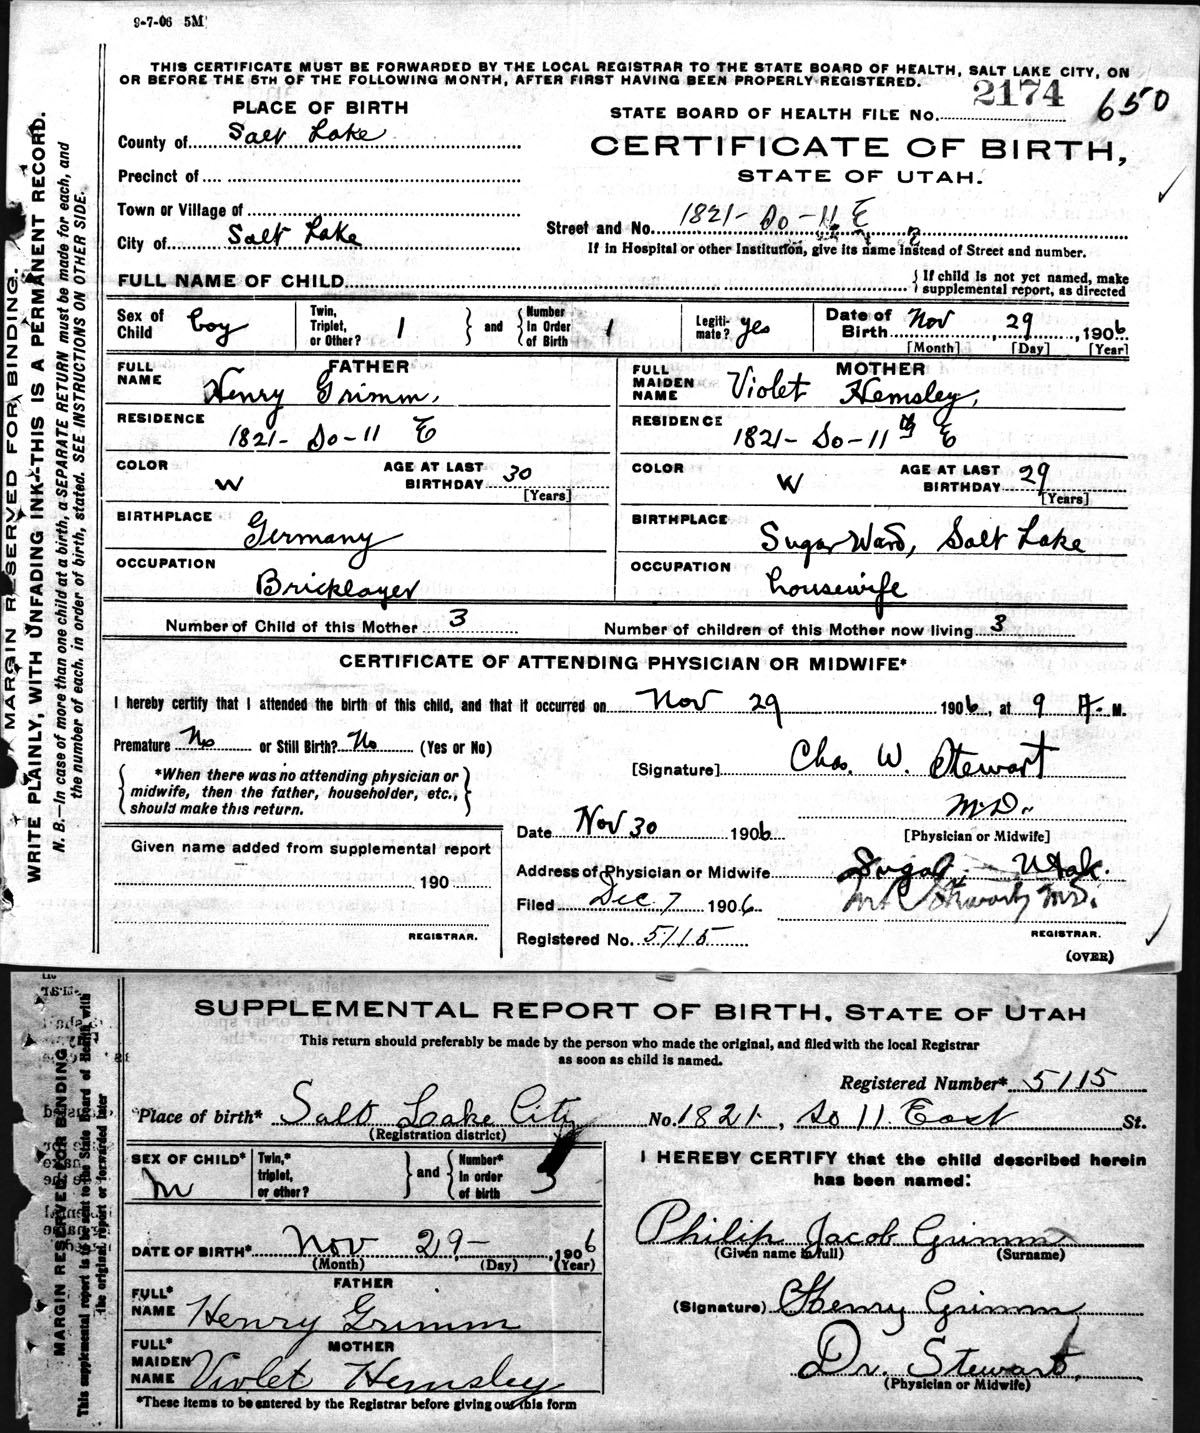 9-7-06 5M
THIS CERTIFICATE MUST BE FORWARDED BY THE LOCAL REGISTRAR TO THE STATE BOARD OF HEALTH, SALT LAKE CITY, ON
OR BEFORE THE 5TH OF THE FOLLOWING MONTH, AFTER FIRST HAVING BEEN PROPERLY REGISTERED.
MARGIN RESERVED FOR BINDING.
WRITE PLAINLY, WITH UNFADING INK-THIS IS A PERMANENT RECORD.
N. B.—In case of more than one child at a birth, a SEPARATE RETURN must be made for each, and
the number of each, in order of birth, stated. SEE INSTRUCTIONS ON OTHER SIDE.
PLACE OF BIRTH
STATE BOARD OF HEALTH FILE NO. 2174 650
County of Salt Lake
CERTIFICATE OF BIRTH,
STATE OF UTAH.
Precinct of
Town or Village of
Street and No. 1821- So-11 E
City of Salt Lake
If in Hospital or other Institution, give its name instead of Street and number.
FULL NAME OF CHILD
If child is not yet named, make
supplemental report, as directed
Sex of Child boy
Twin, Triplet, or Other? 1 and Number in Order of Birth 1
Legitimate? yes
Date of Birth Nov 29, 1906
[Month] [Day] [Year]
FATHER
FULL NAME Henry Grimm,
MOTHER
FULL MAIDEN NAME Violet Hemsley,
RESIDENCE 1821- So-11 E
RESIDENCE 1821- So-11 E
COLOR W AGE AT LAST BIRTHDAY 30 [Years]
COLOR W AGE AT LAST BIRTHDAY 29 [Years]
BIRTHPLACE Germany
BIRTHPLACE Sugar Ward, Salt Lake
OCCUPATION Bricklayer
OCCUPATION housewife
Number of Child of this Mother 3 Number of children of this Mother now living 3
CERTIFICATE OF ATTENDING PHYSICIAN OR MIDWIFE*
I hereby certify that I attended the birth of this child, and that it occurred on Nov 29 1906, at 9 A. M.
Premature No or Still Birth? No (Yes or No)
*When there was no attending physician or
midwife, then the father, householder, etc.,
should make this return.
[Signature] Chas. W. Stewart
M.D.
[Physician or Midwife]
Date Nov 30 1906
Given name added from supplemental report
190
REGISTRAR.
Address of Physician or Midwife Sugar, Utah.
Filed Dec. 7 1906
M.D.
Registered No. 5115
REGISTRAR.
(OVER)
SUPPLEMENTAL REPORT OF BIRTH, STATE OF UTAH
This return should preferably be made by the person who made the original, and filed with the local Registrar
as soon as child is named.
MARGIN RESERVED FOR BINDING
This supplemental report is to be sent to the State Board of Health with
the original report or forwarded later
Registered Number* 5115
Place of birth* Salt Lake City No. 1821, So 11. East St.
(Registration district)
SEX OF CHILD* M
Twin,* triplet, or other? and Number* in order of birth 3
I HEREBY CERTIFY that the child described herein
has been named:
Philip Jacob Grimm
(Given name in full) (Surname)
DATE OF BIRTH* Nov 29- 1906
(Month) (Day) (Year)
FATHER
FULL* NAME Henry Grimm
(Signature) Henry Grimm
MOTHER
FULL* MAIDEN NAME Violet Hemsley
Dr. Stewart,
(Physician or Midwife)
*These items to be entered by the Registrar before giving out this form